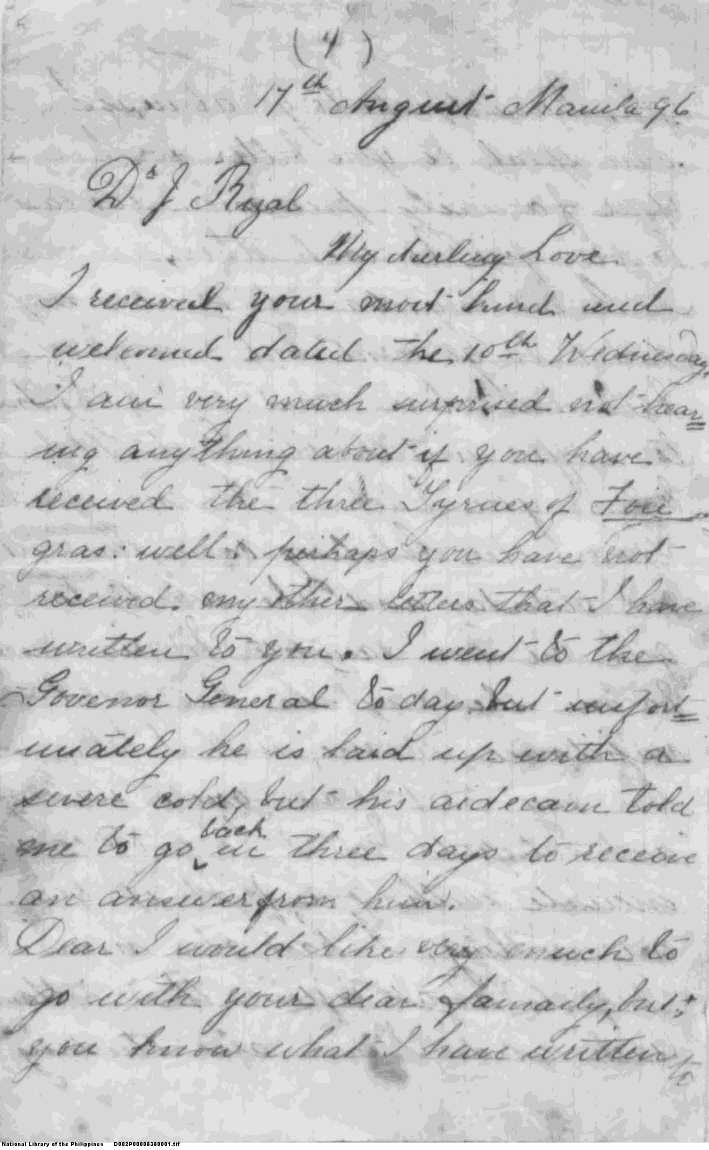 (4)
17th August Manila 96.
Dr J Rizal
My darling Love.
I received your most kind and
welcomed dated the 10th Wednesday,
I am very much surprised not hear=
ing anything about if you have
received the three Tyrnes of Foie
gras: well: perhaps you have not
received my other letters that I have
written to you. I went to the
Govenor General to day but unfort=
unately he is laid up with a
severe cold, but his aidecam told
me to go back in three days to receive
an answer from him.
Dear I would like very much to
go with your dear famaily, but
you know what I have written
to
National Library of the Philippines D002P00008380001.tif